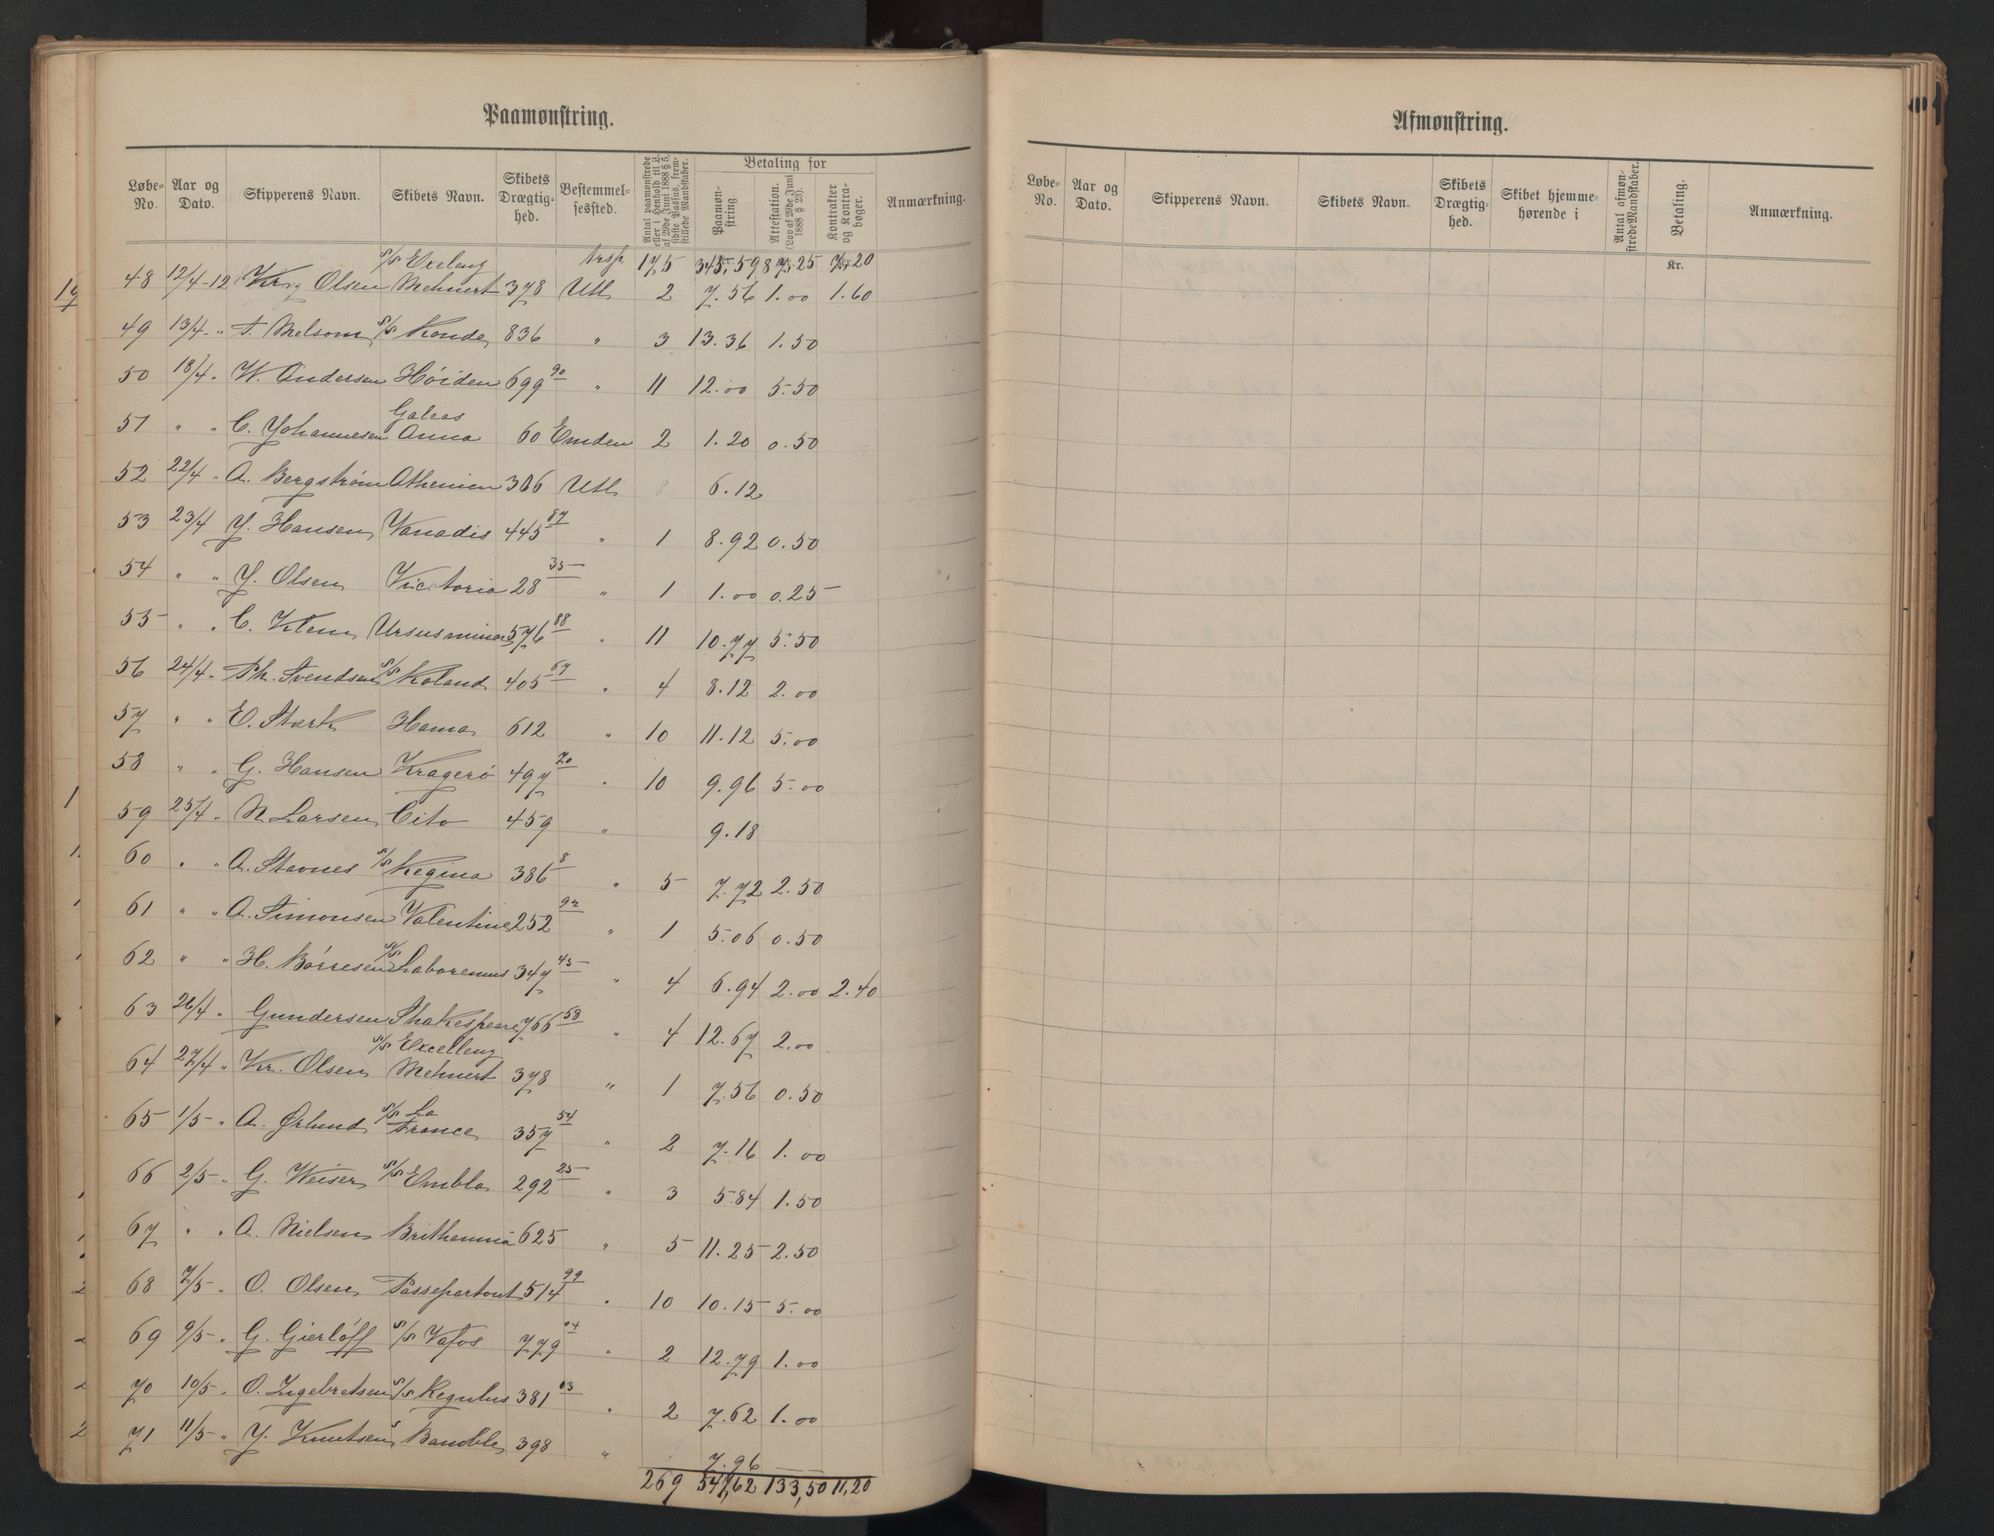 Paamønstring.
Løbe-No. Aar og Dato. Skipperens Navn. Skibets Navn. Skibets Drægtighed. Bestemmelsessted. Antal paamønstrede eller i Henhold til 2. af 29de Juni 1888 § 5, sidste Passus, fremstillede Mandskaber. Betaling for Paamønstring. Attestation. (Lov af 29de Juni 1888 § 23). Kontrakter og Kontrabøger. Anmærkning.
Trsp. 175 345,59 87,25 7,20
48 12/4-12 Kr. Olsen S/S Exeleng Mehnert 378 Utl 2 7.56 1.00 1.60
49 13/4 - " T. Melsom S/S Konde 836 " 3 13.36 1.50
50 18/4 " W. Andersen Høiden 699 90 " 11 12.00 5.50
51 " " C. Johannesen Galeas Anna 60 Emden 2 1.20 0.50
52 22/4 " A. Bergstrøm Athenien 306 Utl 8 6.12
53 23/4 Y. Hansen Vanadis 445 87 " 1 8.92 0.50
54 " " Y. Olsen Victoria 28 35 " 1 1.00 0.25
55 " " C. Klem Ursus minor 576 88 " 11 10.77 5.50
56 24/4 " Th. Svendsen S/S Roland 405 67 " 4 8.12 2.00
57 " " E. Stærk Hama 612 " 10 11.12 5.00
58 " " G. Hansen Kragerø 497 70 " 10 9.96 5.00
59 25/4 " N Larsen Cito 459 " 9.18
60 " " A. Stavnes S/S Regina 386 8 " 5 7.72 2.50
61 " " A. Simonsen Valentine 252 92 " 1 5.06 0.50
62 " " H. Børresen S/S Laboremus 347 45 " 4 6.94 2.00 2.40
63 26/4 " Gundersen Shakespeare 766 58 " 4 12.67 2.00
64 27/4 " Kr. Olsen S/S Excelleng Mehnert 378 " 1 7.56 0.50
65 1/5 - " A. Ørlund S/S La France 357 54 " 2 7.16 1.00
66 2/5 - " G. Weiser S/S Embla 292 25 " 3 5.84 1.50
67 " " A. Nielsen Brithannia 625 " 5 11.25 2.50
68 7/5 - " O. Olsen Passepartout 514 99 " 10 10.15 5.00
69 9/5 - " G. Gierløff S/S Vafos 779 04 " 2 12.79 1.00
70 10/5 - " O. Ingebretsen S/S Regulus 381 03 " 2 7.62 1.00
71 11/5 - " Y. Knutsen S Bamble 398 " 7.96
269 547,62 133,50 11,20
Afmønstring.
Løbe-No. Aar og Dato. Skipperens Navn. Skibets Navn. Skibets Drægtighed. Skibet hjemmehørende i Antal afmønstrede Mandskaber. Betaling. Anmærkning.
Kr.